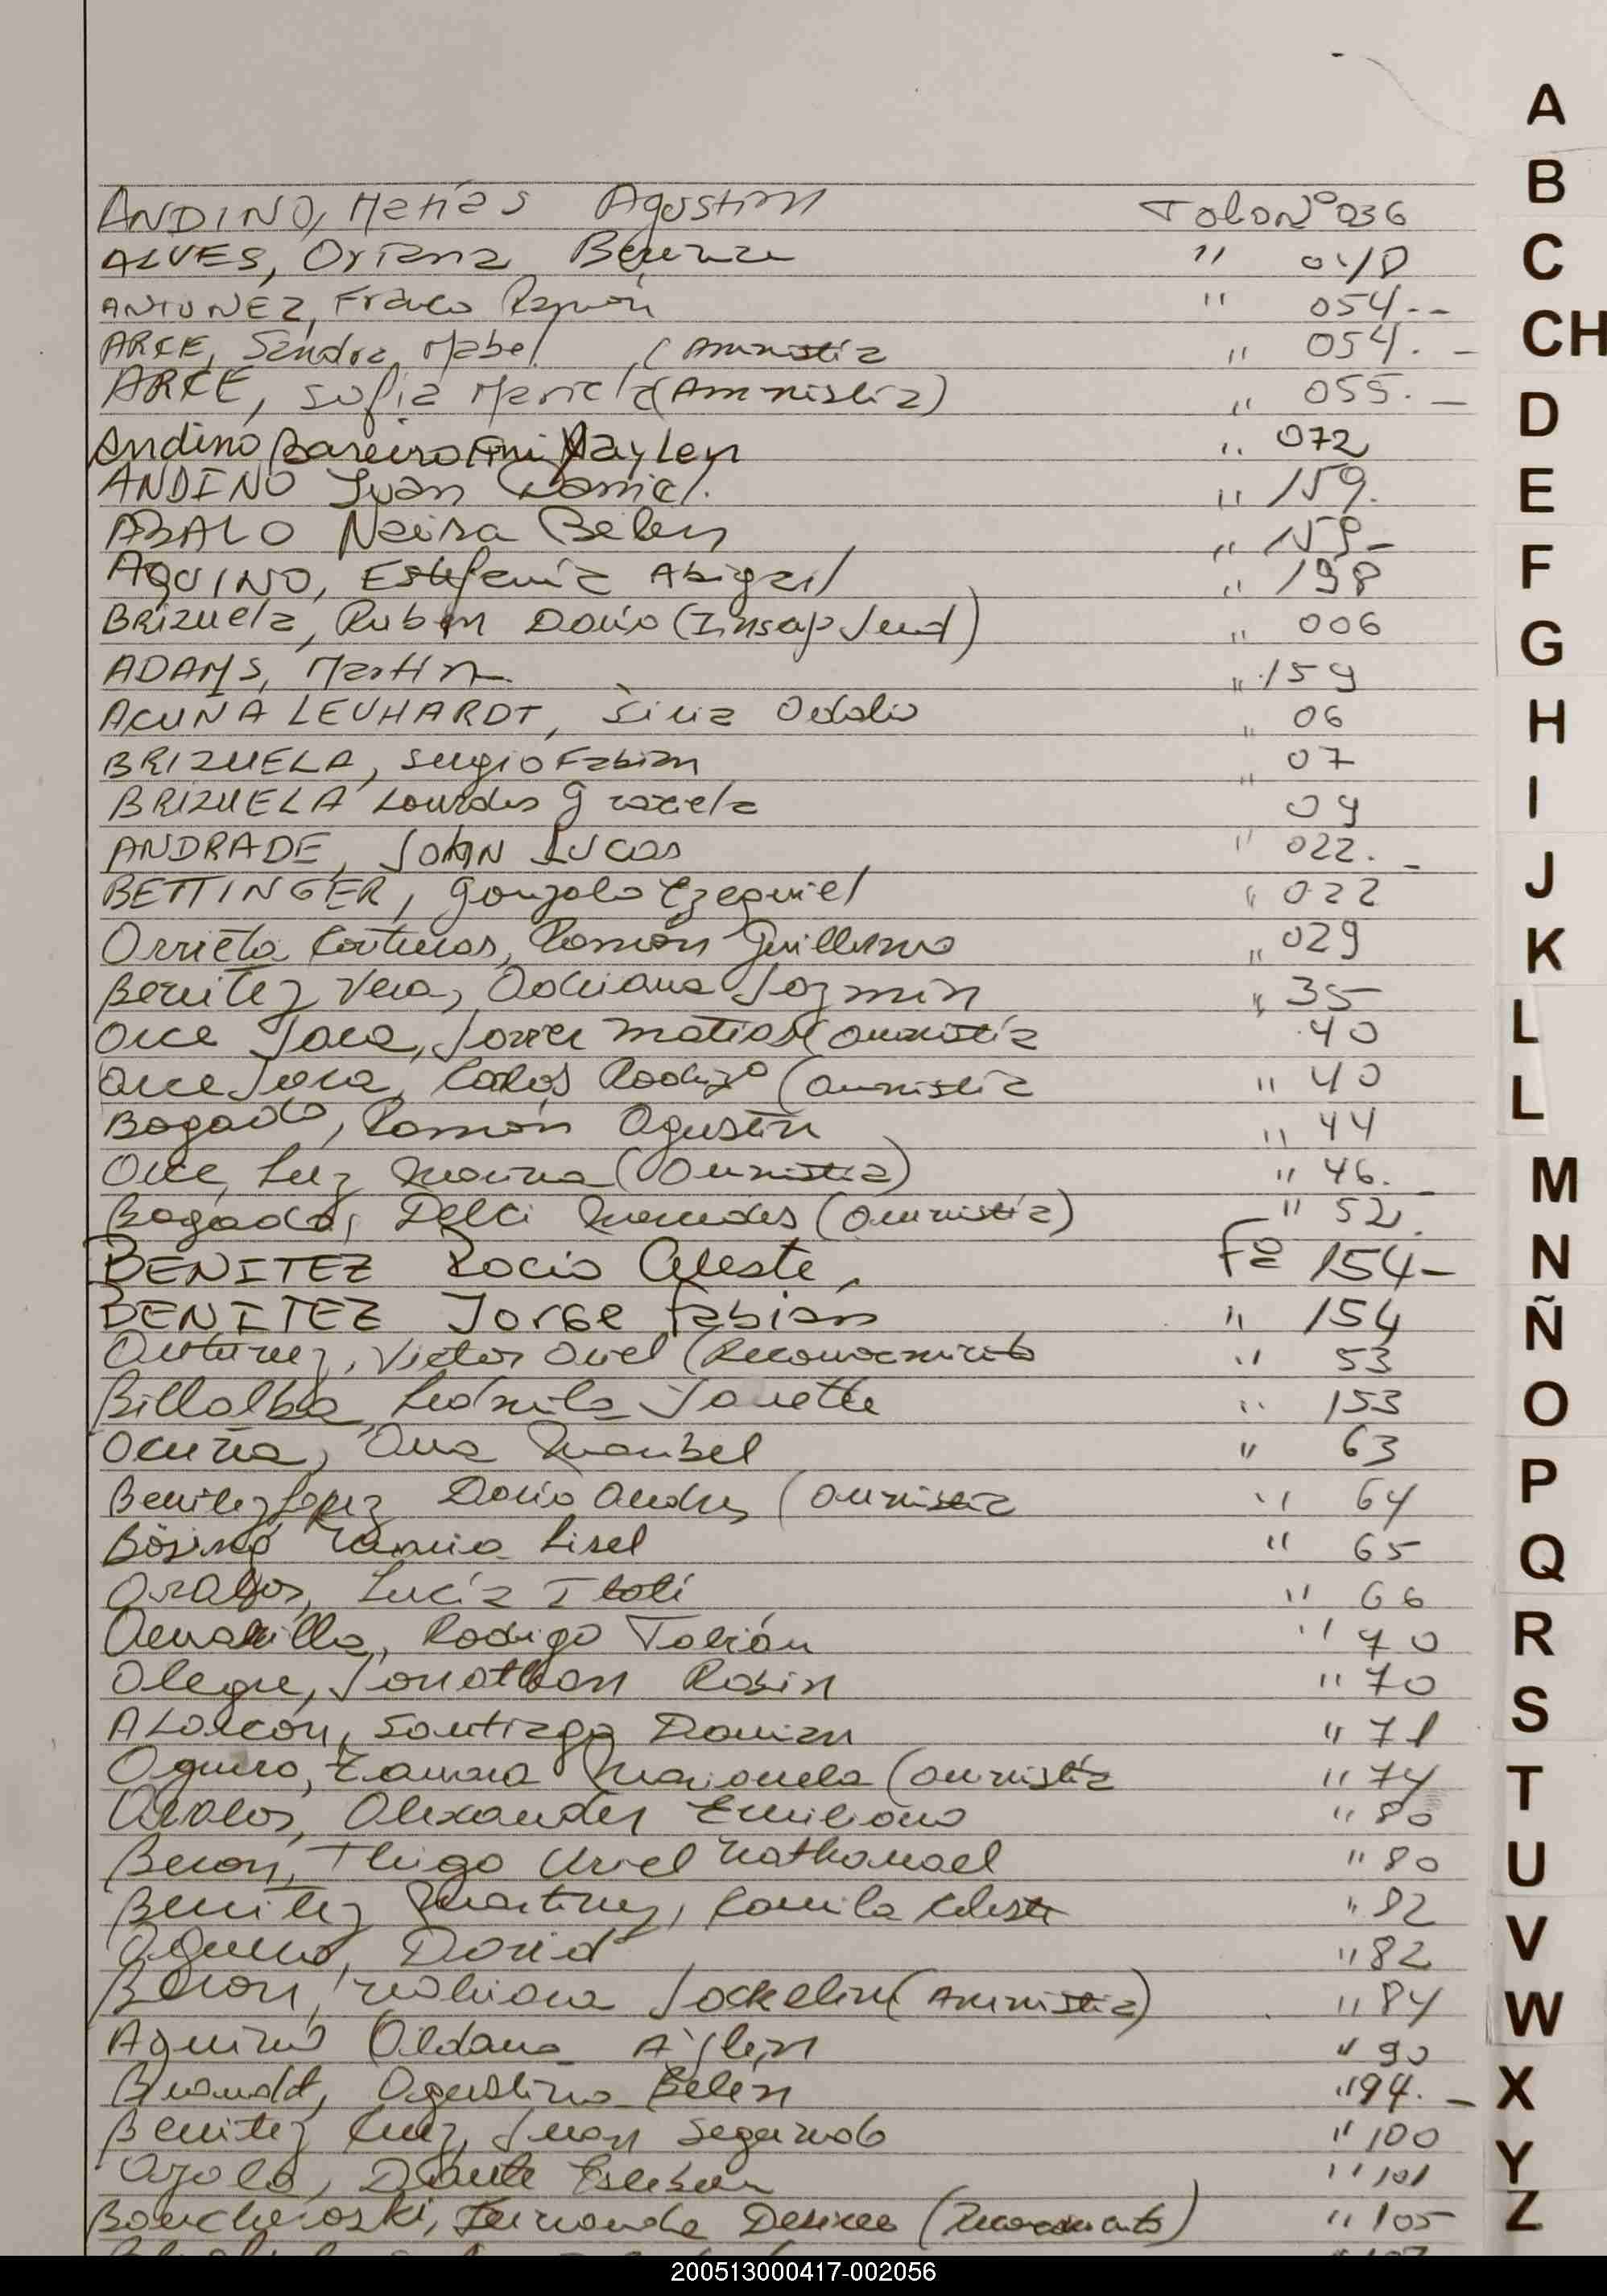 ANDINO, Matías Agustin Folio Nº 036
ALVES, Oriana Berenice " 040
ANTUNEZ, Franco Ramón " 054--
ARCE, Sandra Mabel (Amnistia " 054. -
ARCE, Sofia Mariela (Amnistia) " 055. -
Andino Bareiro Ami Naylen " 072
ANDINO Juan Daniel. " 159.
ABALO Neira Belen " 159-
AQUINO, Estefania Abigail " 198
BRIZUELA, Ruben Dario (Insap Jud) " 006
ADAMS, Martin " 159
ACUÑA LEUHARDT, Silvia " 06
BRIZUELA, Sergio Fabian " 07
BRIZUELA Lourdes Graciela 09
ANDRADE, JOHN LUCAS " 022. -
BETTINGER, Gonzalo Ezequiel " 022
Arrieta Contreras, Ramón Guillermo " 029
Benitez Vera, Adriana Jazmin " 35
Arce Jara, Javier Matias (Amnistia 40
Arce Jara, Carlos Rodrigo (Amnistia " 40
Bogado, Ramón Agustin " 44
Arce, Luz Marina (Amnistia) " 46. -
Bogado, Delci Mercedes (Amnistia) " 52.
BENITEZ Rocio Celeste, Fº 154-
BENITEZ Jorge Fabian " 154
Antunez, Victor Ariel (Reconocimiento " 53
Billalba, Ludmila Janette " 153
Acuña, Ana Maribel " 63
Benitez Lopez Dario Andres (Amnistia " 64
Bösing Tamia Lisel " 65
Avalos, Lucía Itatí " 66
Amarilla, Rodrigo Tobián " 70
Alegre, Jonathan Robin " 70
ALarcón, Santiago Damian " 71
Aguero, Zamara Marianela (Amnistia " 74
Avalos, Alexander Emiliano " 80
Beron, Thiago Uriel Nathanael " 80
Benitez Martinez, Camila Celeste " 82
Aguero, David " 82
Beron, Jackelin (Amnistia) " 84
Aquino Aldana Aylen " 90
Brandt, Agustina Belén " 94. -
Benitez Cruz, Juan Segundo " 100
Ayala, Dante Esteban " 101
Fernanda Desiree (Reconocimiento) " 105
A
B
C
CH
D
E
F
G
H
I
J
K
L
L
M
N
Ñ
O
P
Q
R
S
T
U
V
W
X
Y
Z
200513000417-002056